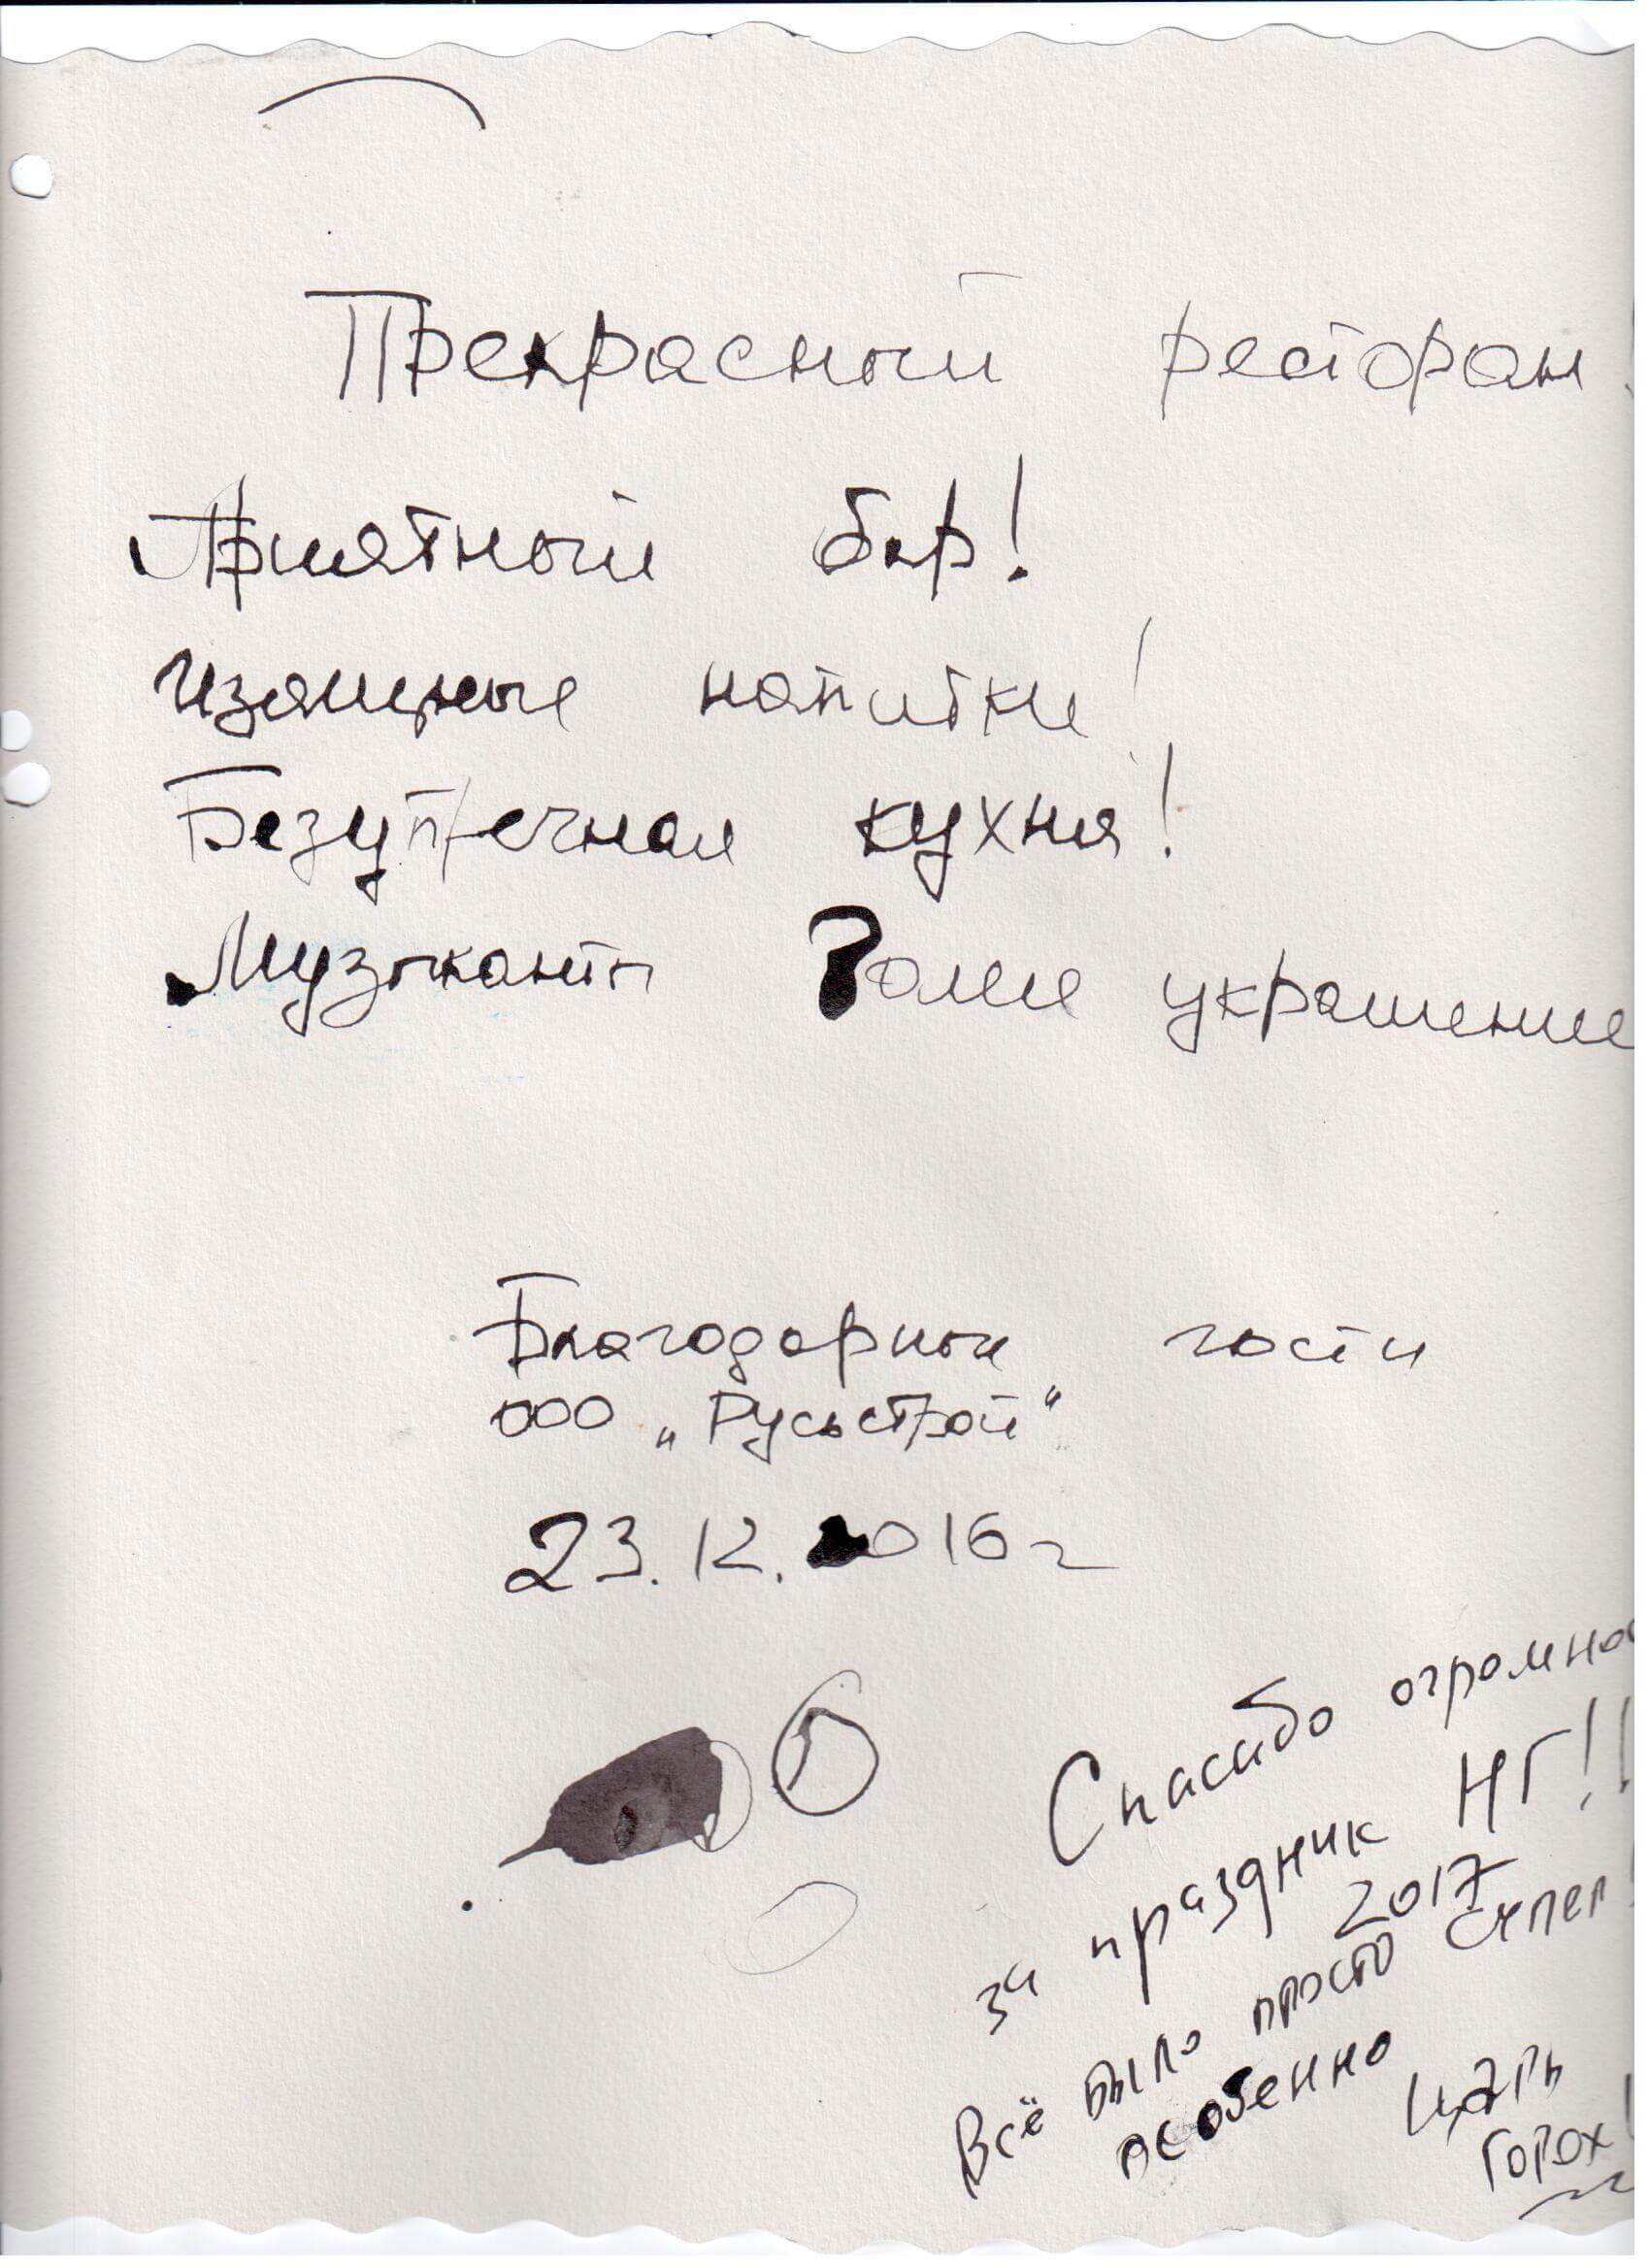 Прекрасный ресторан
Приятный бар!
Изящные напитки!
Безупречная кухня!
Музыканты украшение
Благодарные гости
ООО „Русьстрой“
23.12.2016 г
Спасибо огромное
за праздник НГ!!
2017
Всё было просто супер!
особенно Царь
Горох!